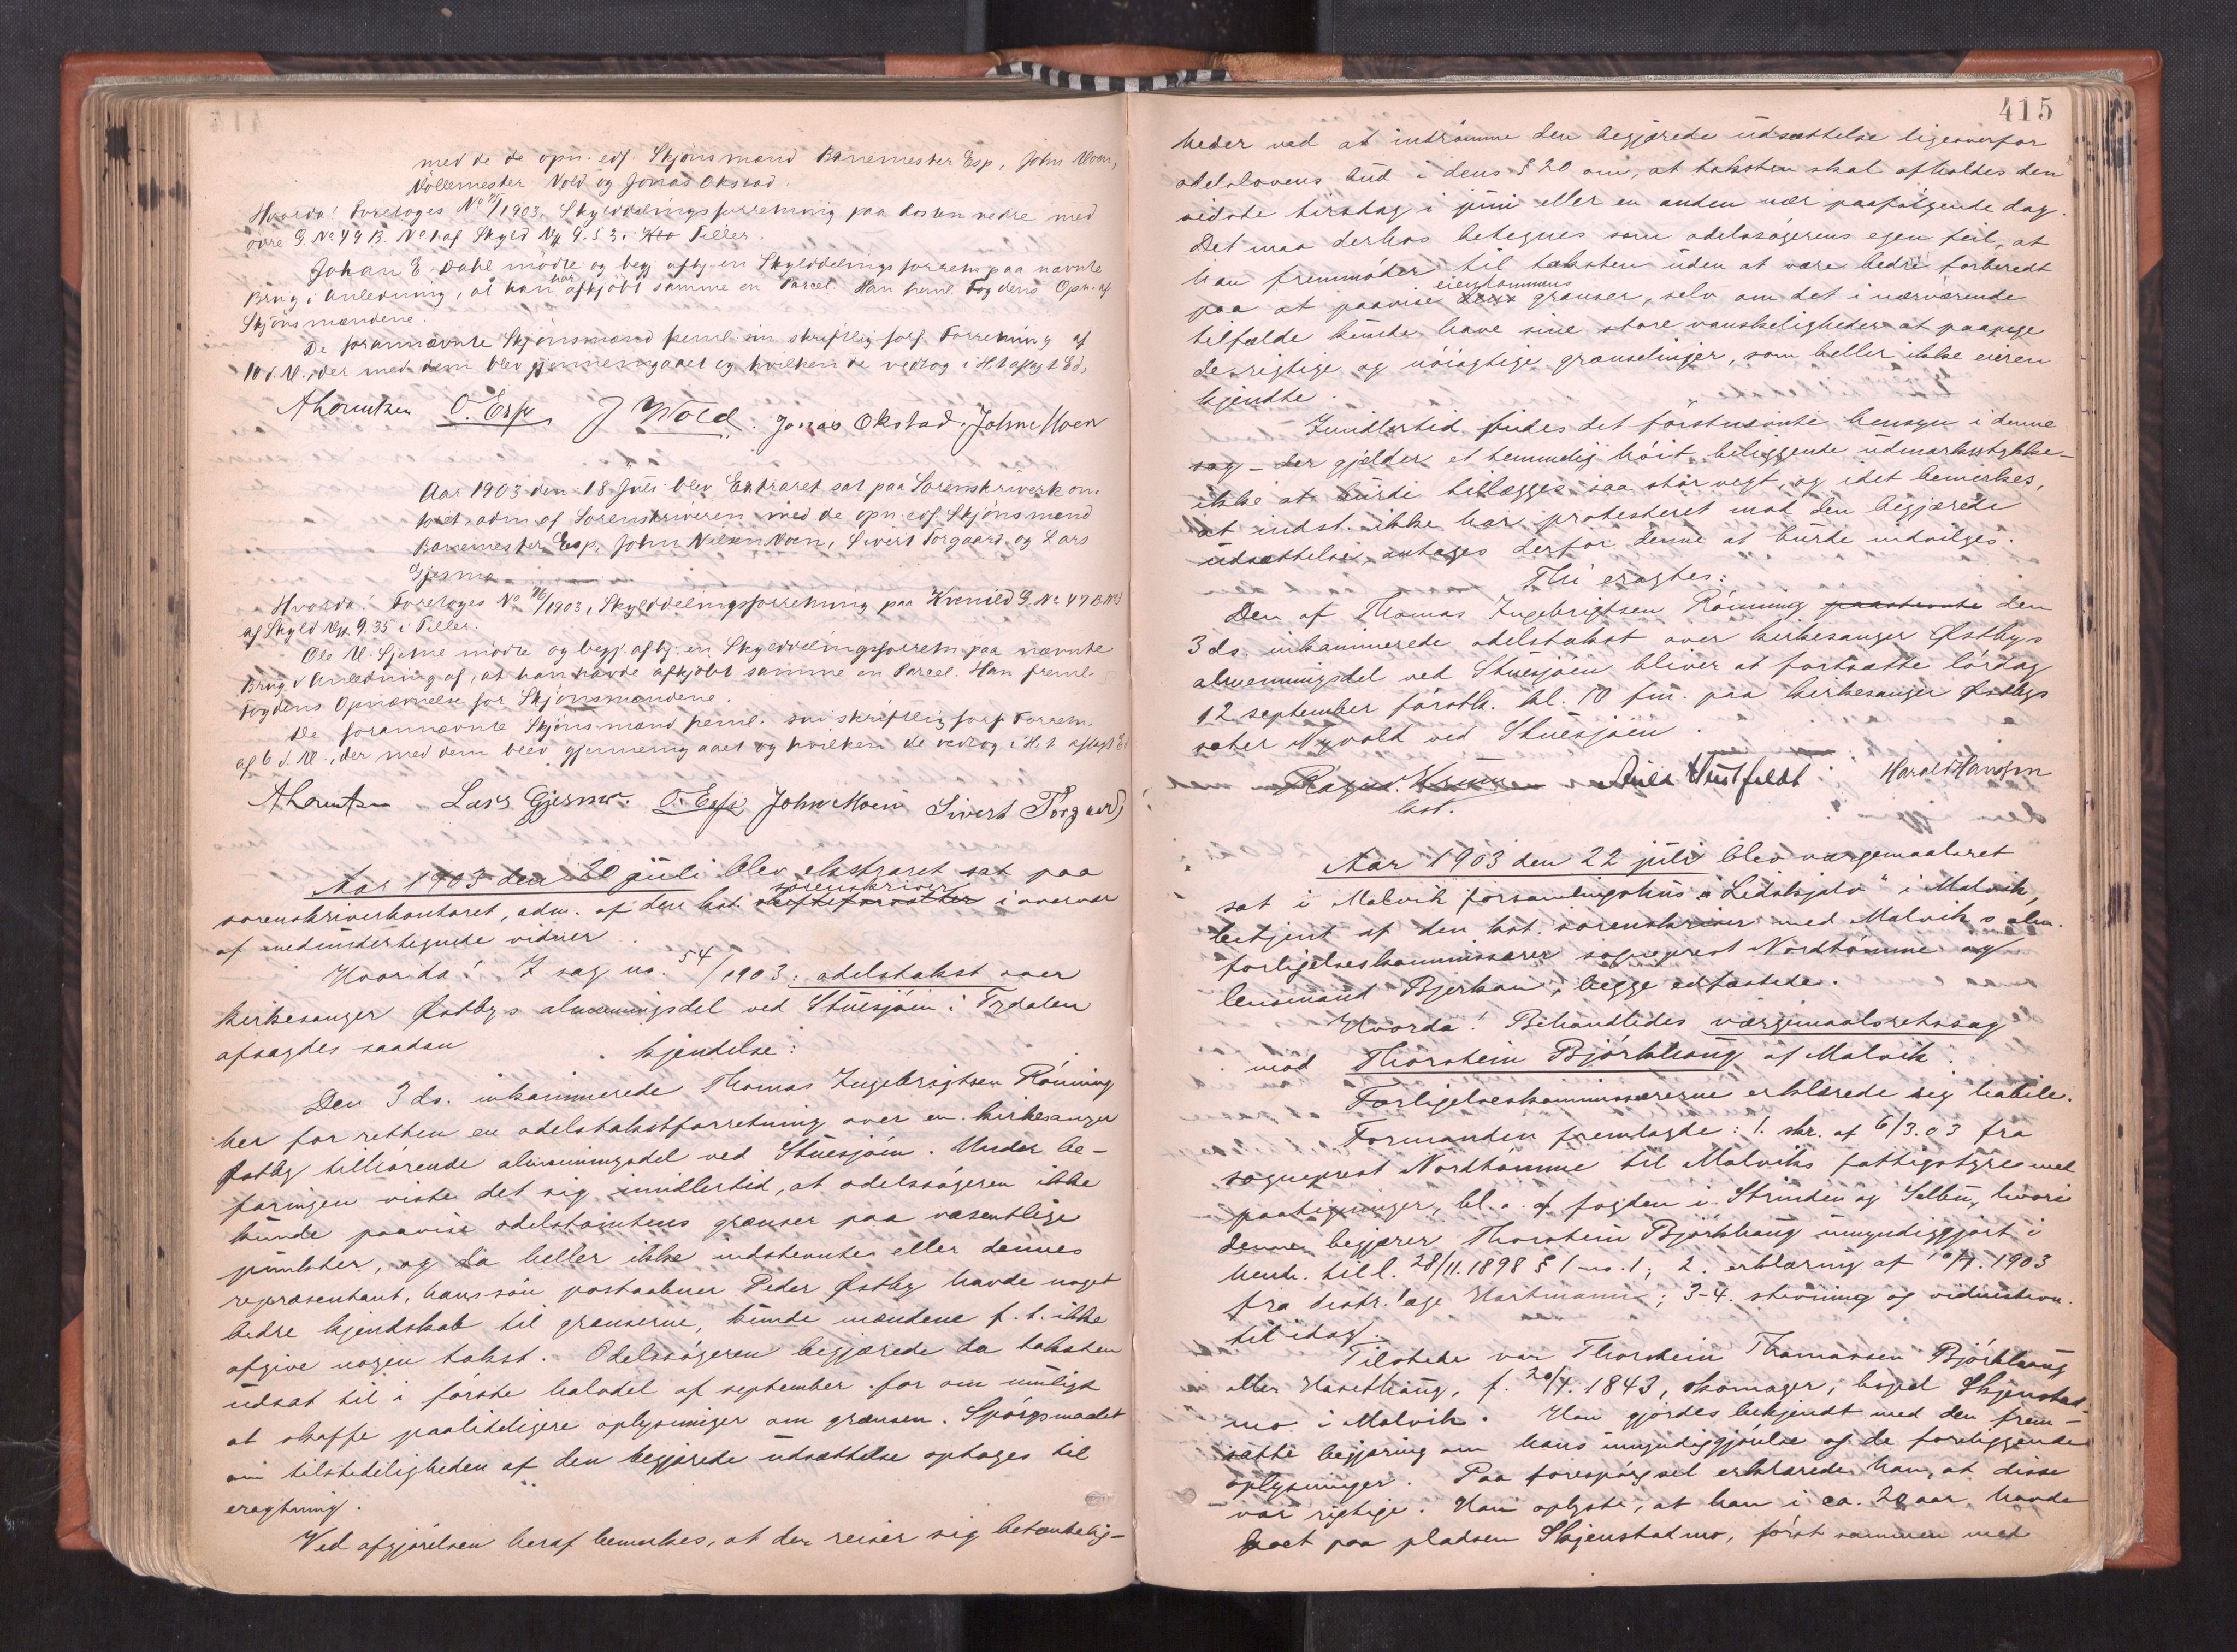 med de de opn. edf. Skjönsmænd Banemester Esp, John Moen,
Möllemester Vold og Jonas Okstad.
Hvorda! Foretoges No 75/1903, Skylddelingsforretning paa Rosten nedre med
övre G. No 49 B. No 1 af Skyld Mk 9.53 i Tiller.
Johan E. Dahl mödte og begj. afh. en Skylddelingsforretn. paa nævnte
Brug i Anledning, at han har afkjöbt samme en Parcel. Han freml. Fogdens Opn. af
Skjönsmændene.
De forannævnte Skjönsmænd freml. sin skriftlig forf. Forretning af
10 d. M., der med dem blev gjennemgaaet og hvilken de vedtog i H.t. aflagt Ed.
AhLorentzen O. Esp J Wold. Jonas Okstad. John Moen
Aar 1903 den 18 Juli blev Extraret sat paa Sorenskriverkon-
toret, adm. af Sorenskriveren med de opn. edf. Skjönsmænd
Banemester Esp, John Nilsen Moen, Sivert Torgaard og Lars
Gjesmo
Hvorda! Foretoges No 76/1903, Skylddelingsforretning paa Kvenild G. No 47 B. No 1
af Skyld Mk. 9.35 i Tiller.
Ole M. Sjetne mödte og begj. afh. en Skylddelingsforretn. paa nævnte
Brug i Anledning af, at han havde afkjöbt samme en Parcel. Han freml.
Fogdens Opnævnelse for Skjönsmændene.
De forannævnte Skjönsmænd freml. sin skriftlig forf. Forretn.
af 6 d. M., der med dem blev gjennemgaaet og hvilken de vedtog i H.t. aflagt Ed
AhLorentzen Lars Gjesmo. O. Esp John Moen Sivert Torgaard
Aar 1903 den 20 juli blev ekstraret sat paa
sorenskriverkontoret, adm. af den kst. sorenskriver skifteforvalter i overvær
af medundertegnede vidner.
Hvorda! I sag no. 54/1903: odelstakst over
kirkesanger Østbys almenningsdel ved Stuesjöen i Tydalen
afsagdes saadan kjendelse:
Den 3 ds. inkaminerede Thomas Ingebrigtsen Rönning
her for retten en odelstakstforretning over en kirkesanger
Østby tilhörende almenningsdel ved Stuesjöen. Under be-
faringen viste det sig imidlertid, at odelssögeren ikke
kunde paavise odelstomtens grænser paa væsentlige
punkter, og da heller ikke indstevnte eller dennes
repræsentant, hans sön postaabner Peder Østby havde noget
bedre kjendskab til grænserne, kunde mændene f. t. ikke
afgive nogen takst. Odelssögeren begjærede da taksten
udsat til i förste halvdel af september for om muligt
at skaffe paalideligere oplysninger om grænsen. Spörgsmaalet
om tilstedeligheden af den begjærede udsættelse optoges til
eragtning.
Ved afgjörelsen heraf bemerkes, at der reiser sig betænkelig-
415
heder ved at indrömme den begjærede udsættelse ligeoverfor
odelslovens bud i dens § 20 om, at taksten skal afholdes den
sidste tirsdag i juni eller en anden nær paafölgende dag.
Det maa derhos betegnes som odelssögerens egen feil, at
han fremmöder til taksten uden at være bedre forberedt
paa at paavise eiendommens grænser, selv om det i nærværende
tilfælde kunde have sine store vanskeligheder at paapege
de rigtige og nöiagtige grænselinjer, som heller ikke eieren
kjendte.
Imidlertid findes det förstnævnte hensyn i denne
sag – der gjælder et temmelig höit beliggende udmarksstykke –
ikke at burde tillægges saa stor vegt, og idet bemerkes,
at indst. ikke har protesteret mod den begjærede
udsættelse, antages derfor denne at burde indvilges.
Thi eragtes:
Den af Thomas Ingebrigtsen Rönning paastevnte den
3 ds. inkaminerede odelstakst over kirkesanger Østbys
almenningsdel ved Stuesjöen bliver at fortsætte lördag
12 september förstk. kl. 10 fm. paa kirkesanger Østbys
sæter Nyvold ved Stuesjöen.
kst. Huitfeldt Harald Hansen
Aar 1903 den 22 juli blev værgemaalsret
sat i Malvik forsamlingshus „Lidskjalv" i Malvik,
betjent af den kst. sorenskriver med Malviks alm.
forligelseskommissærer sogneprest Nordtömme og
lensmand Bjerkan, begge edfæstede.
Hvorda! Behandledes værgemaalsretssag
mod Thorstein Björkhaug af Malvik.
Forligelseskommissærerne erklærede sig habile.
Formanden fremlagde: 1. skr. af 6/3.03 fra
sogneprest Nordtömme til Malviks fattigstyre med
paategninger, bl. a. af fogden i Strinden og Selbu, hvori
denne begjærer Thorstein Björkhaug umyndiggjort i
henh. til l. 28/11.1898 § 1 no. 1; 2. erklæring af 10/7.1903
fra distr. læge Hartmann; 3-4. stevning og vidnestevn.
til idag.
Tilstede var Thorstein Thomassen Björkhaug
eller Hasethaug, f. 20/4.1843, skomager, bopæl Skjenstad-
mo i Malvik. Han gjordes bekjendt med den frem-
satte begjæring om hans umyndiggjörelse og de foreliggende
oplysninger. Paa forespörgsel erklærede han, at disse
var rigtige. Han oplyste, at han i ca. 20 aar havde
boet paa pladsen Skjenstadmo, först sammen med